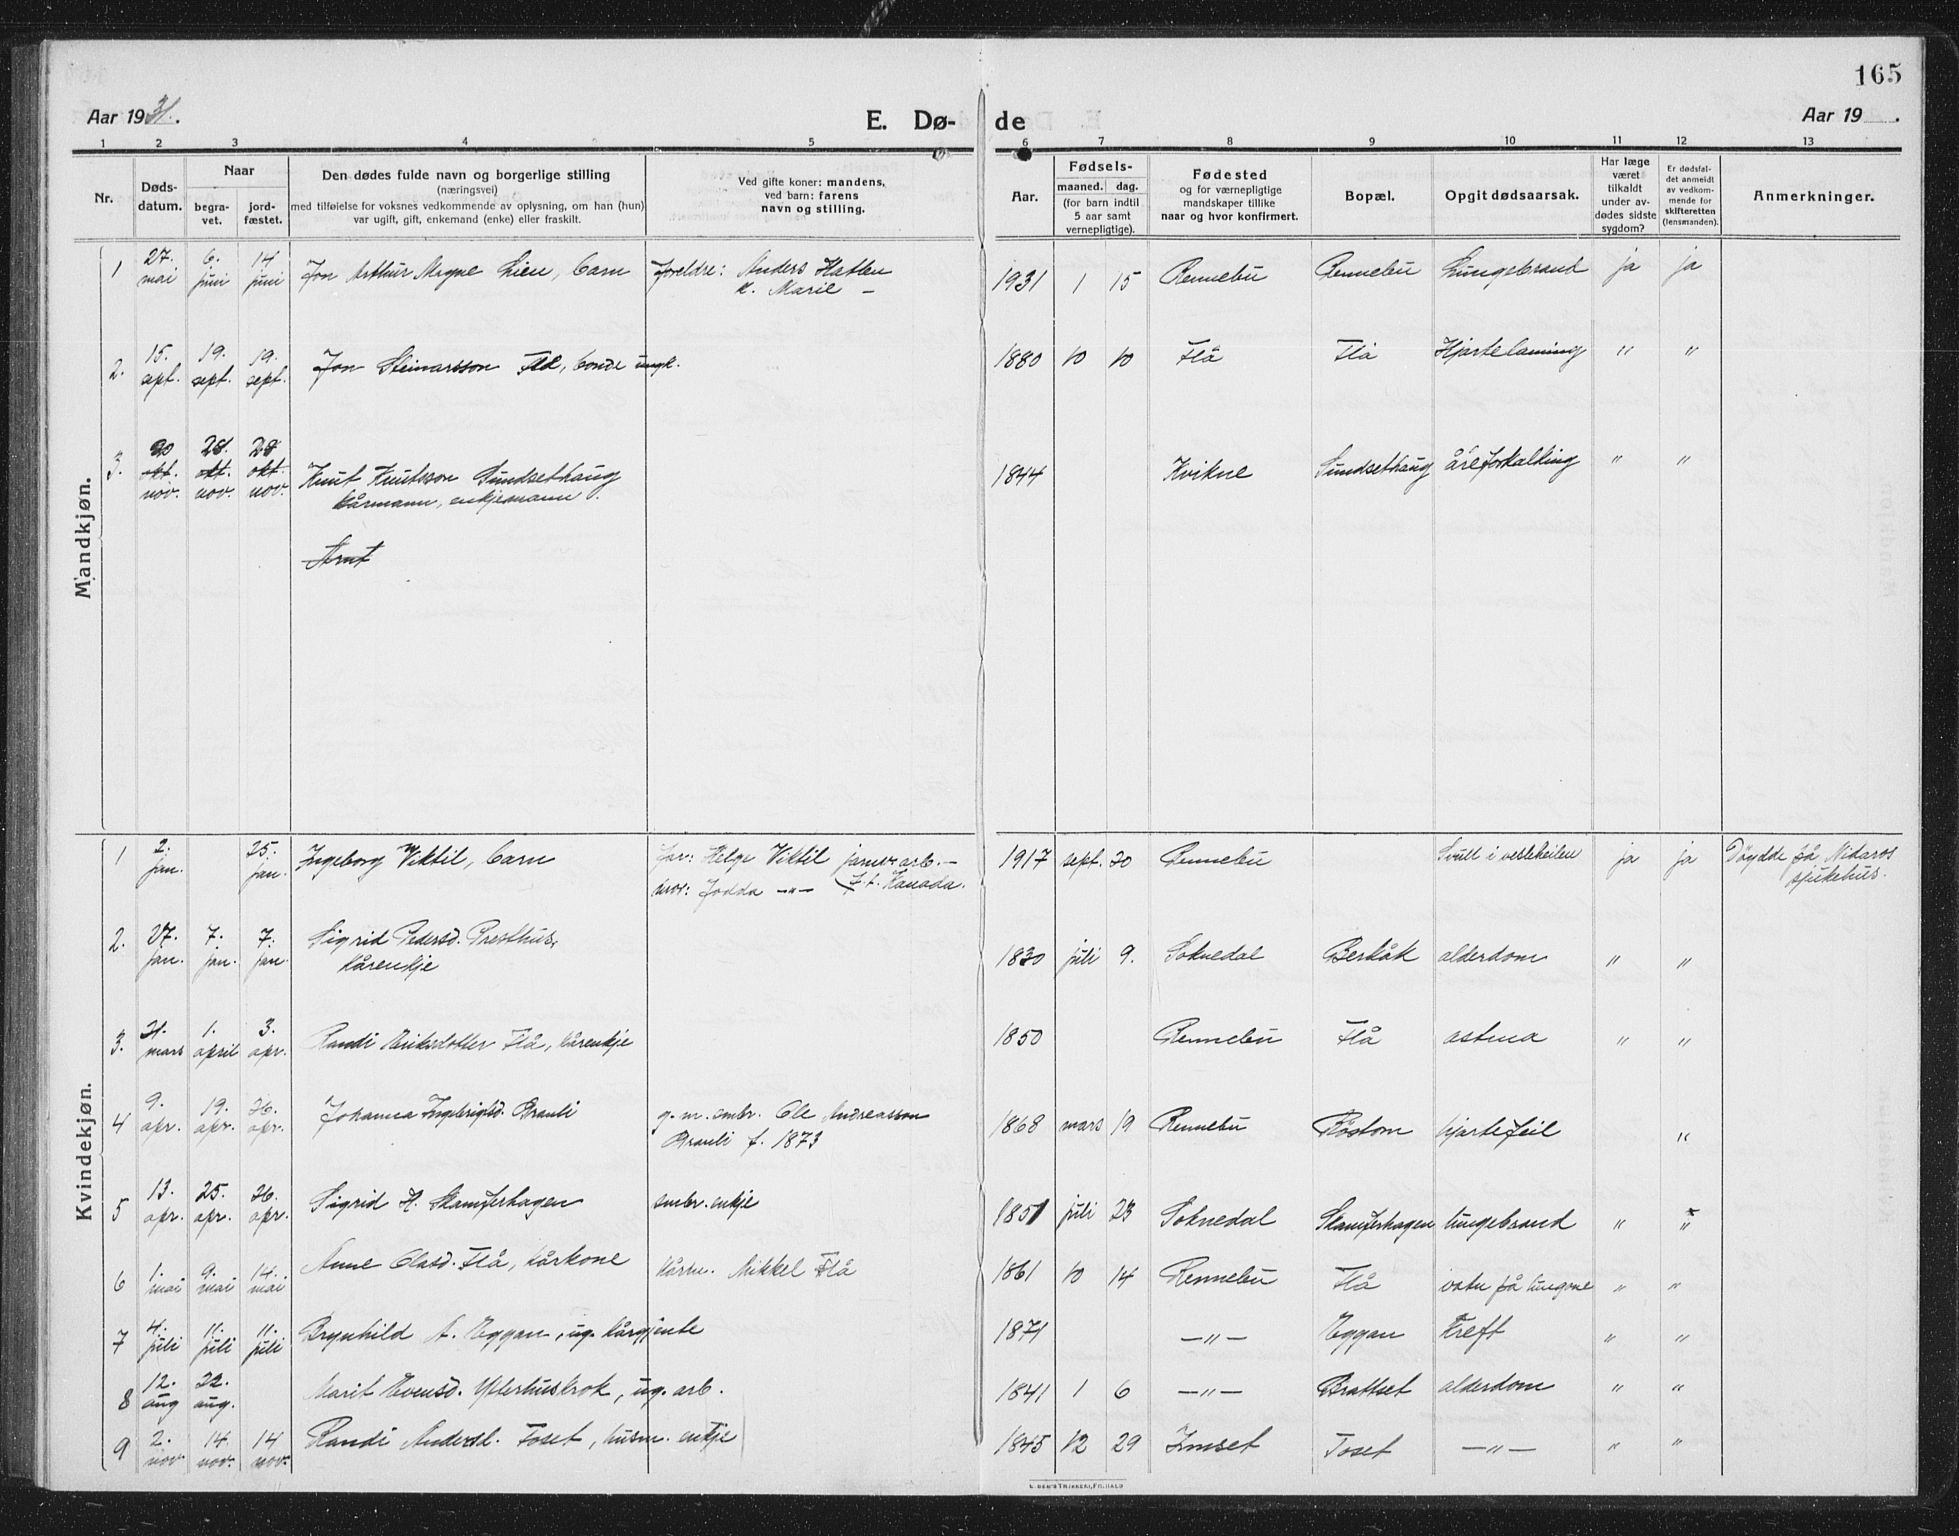 165
Aar 1931.
E. Dø-
de
Aar 19 .
1 2 3 4 5 6 7 8 9 10 11 12 13
Nr.
Døds-
datum.
Naar
begra-
vet.
jord-
fæstet.
Den dødes fulde navn og borgerlige stilling
(næringsvei)
med tilføielse for voksnes vedkommende av oplysning, om han (hun)
var ugift, gift, enkemand (enke) eller fraskilt.
Ved gifte koner: mandens,
ved barn: farens
navn og stilling.
Aar.
Fødsels-
maaned. dag.
(for barn indtil
5 aar samt
vernepligtige).
Fødested
og for værnepligtige
mandskaper tillike
naar og hvor konfirmert.
Bopæl.
Opgit dødsaarsak.
Har læge
været
tilkaldt
under av-
dødes sidste
sygdom?
Er dødsfal-
det anmeldt
av vedkom-
mende for
skifteretten
(lensmanden).
Anmerkninger.
Mandkjøn.
1 27. mai 6. juni 14 juni Jon Arthur Magne Lien, barn Foreldre: Anders Hatlen
k. Marie —
1931 1 15 Rennebu Rennebu Lungebrand ja ja
2. 15. sept. 19. sept. 19. sept. Jon Steinarsson Flå, bonde ungk.
1880 10 10 Flå Flå Hjartelaming " "
3. 20 okt. nov. 28. okt. nov. 28 okt. nov. Knut Knutsson Sundsethaug
kårmann, enkjemann.
1844 Kvikne Sundsethaug åreforkalking " "
Arnt
Kvindekjøn.
1 2. jan. 25. jan. Ingeborg Viktil, barn far: Helge Viktil arb. —
mor: Jodda —"— f.t. Kanada.
1917 sept. 20 Rennebu Svull i vesleheilen ja ja Døydde på Nidaros
sjukehus.
2. 27. jan. 7. jan. 7. jan. Sigrid Pedersd. Presthus,
kårenkje
1830 juli 9. Soknedal Berkåk alderdom " "
3. 21. mars 1. april 3. apr. Randi Eriksdotter Flå, kårenkje
1850 Rennebu Flå astma " "
4 9. apr. 19. apr. 26. apr. Johanna Ingebrigtsd. Branli g. m. smbr. Ole Andreasson
Branli f. 1873
1868 mars 19 Rennebu Røstom hjartefeil "
5 13. apr. 25. apr. 26. apr. Sigrid H. Skamferhagen smbr. enkje
1851 juli 23 Soknedal Skamferhagen lungebrand " "
6 1. mai 9. mai 14. mai Anne Olasd. Flå, kårkone kårm. Mikkel Flå
1861 10 14 Rennebu Flå vatn på lungone " "
7 4. juli 11. juli 11. juli Brynhild A. Eggan, ug. kårgjente
1871 —"— Eggan Kreft " "
8 12. aug 22. aug. Marit Evensd. Ytterhuskrok, ug. arb.
1841 1 6 —"— Brattset alderdom " "
9 2. nov. 14 nov. 14 nov. Randi Andersd. Foset, husm. enkje
1845 12 29 Innset Foset —"— " "